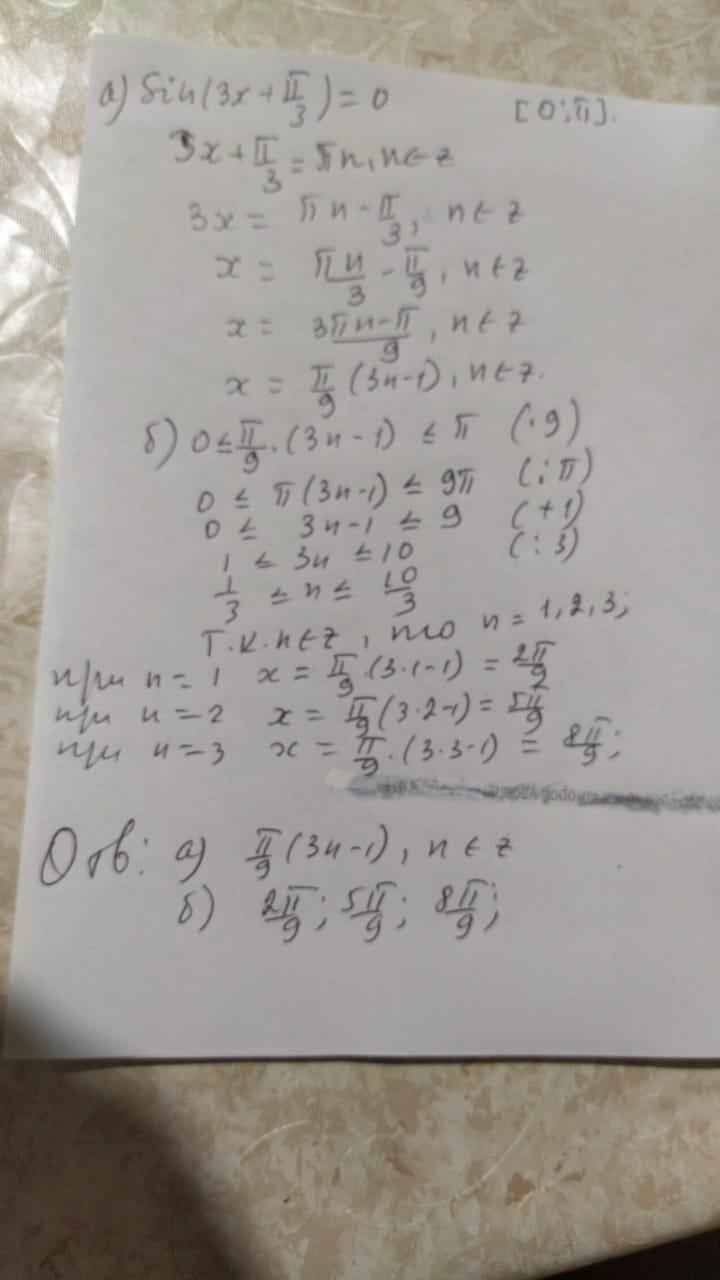 а) Sin(3x + π/3) = 0 [0; π].
3x + π/3 = πn, n ∈ z
3x = πn - π/3, n ∈ z
x = πn/3 - π/9, n ∈ z
x = 3πn-π/9, n ∈ z
x = π/9 (3n-1), n ∈ z.
б) 0 ≤ π/9 · (3n - 1) ≤ π (·9)
0 ≤ π(3n-1) ≤ 9π (:π)
0 ≤ 3n-1 ≤ 9 (+1)
1 ≤ 3n ≤ 10 (:3)
1/3 ≤ n ≤ 10/3
Т.к. n ∈ z, то n = 1, 2, 3;
при n = 1 x = π/9 · (3·1-1) = 2π/9
при n = 2 x = π/9 (3·2-1) = 5π/9
при n = 3 x = π/9 · (3·3-1) = 8π/9;
Отв: а) π/9 (3n-1), n ∈ z
б) 2π/9; 5π/9; 8π/9;